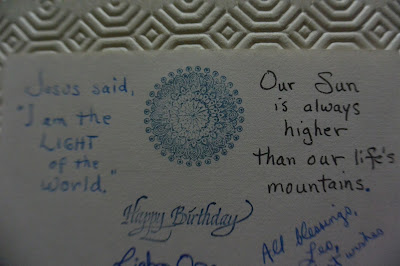 Jesus said,
"I am the
LIGHT
of the
World."
Our Sun
is always
higher
than our life's
mountains.
Happy Birthday
All blessings,
Leo,
wishes